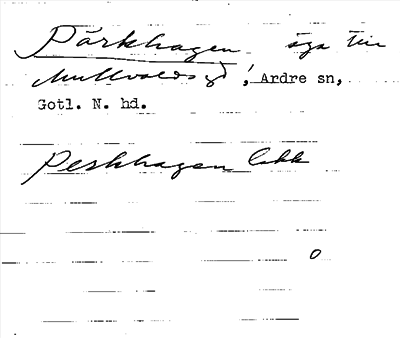 Pärkhagen äga till
Mullvalds gd, Ardre sn,
Gotl. N. hd.
Peskhagen
o